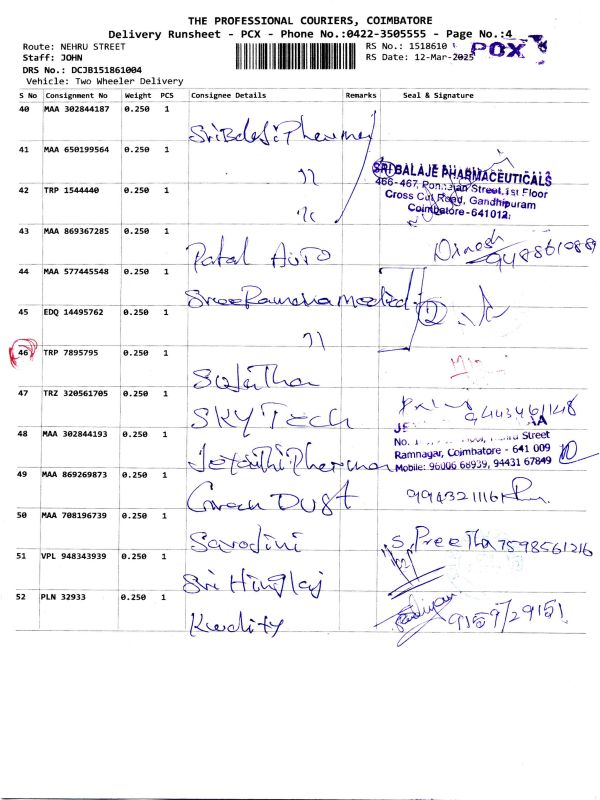 THE PROFESSIONAL COURIERS, COIMBATORE
Delivery Runsheet - PCX - Phone No.:0422-3505555 - Page No.:4
Route: NEHRU STREET RS No.: 1518610
Staff: JOHN RS Date: 12-Mar-2025 POX
DRS No.: DCJB151861004
Vehicle: Two Wheeler Delivery
S No Consignment No Weight PCS Consignee Details Remarks Seal & Signature
40 MAA 302844187 0.250 1
41 MAA 650199564 0.250 1
SRI BALAJE PHARMACEUTICALS
466-467, Ponnaian Street, 1st Floor
Cross Cut Road, Gandhipuram
Coimbatore - 641012.
42 TRP 1544440 0.250 1
43 MAA 869367285 0.250 1 Dinesh
Patal Auto
44 MAA 577445548 0.250 1
45 EDQ 14495762 0.250 1
46 TRP 7895795 0.250 1
Sujatha
47 TRZ 320561705 0.250 1
SKY TECH
48 MAA 302844193 0.250 1
Nehru Street
Ramnagar, Coimbatore - 641 009
Mobile: 96006 68939, 94431 67849
Pharma
49 MAA 869269873 0.250 1 9994321116
Green Dust
50 MAA 708196739 0.250 1
Sarodini S. Preetha 7598561216
51 VPL 948343939 0.250 1
Sri Hinglaj
52 PLN 32933 0.250 1
Kwality 9159729151